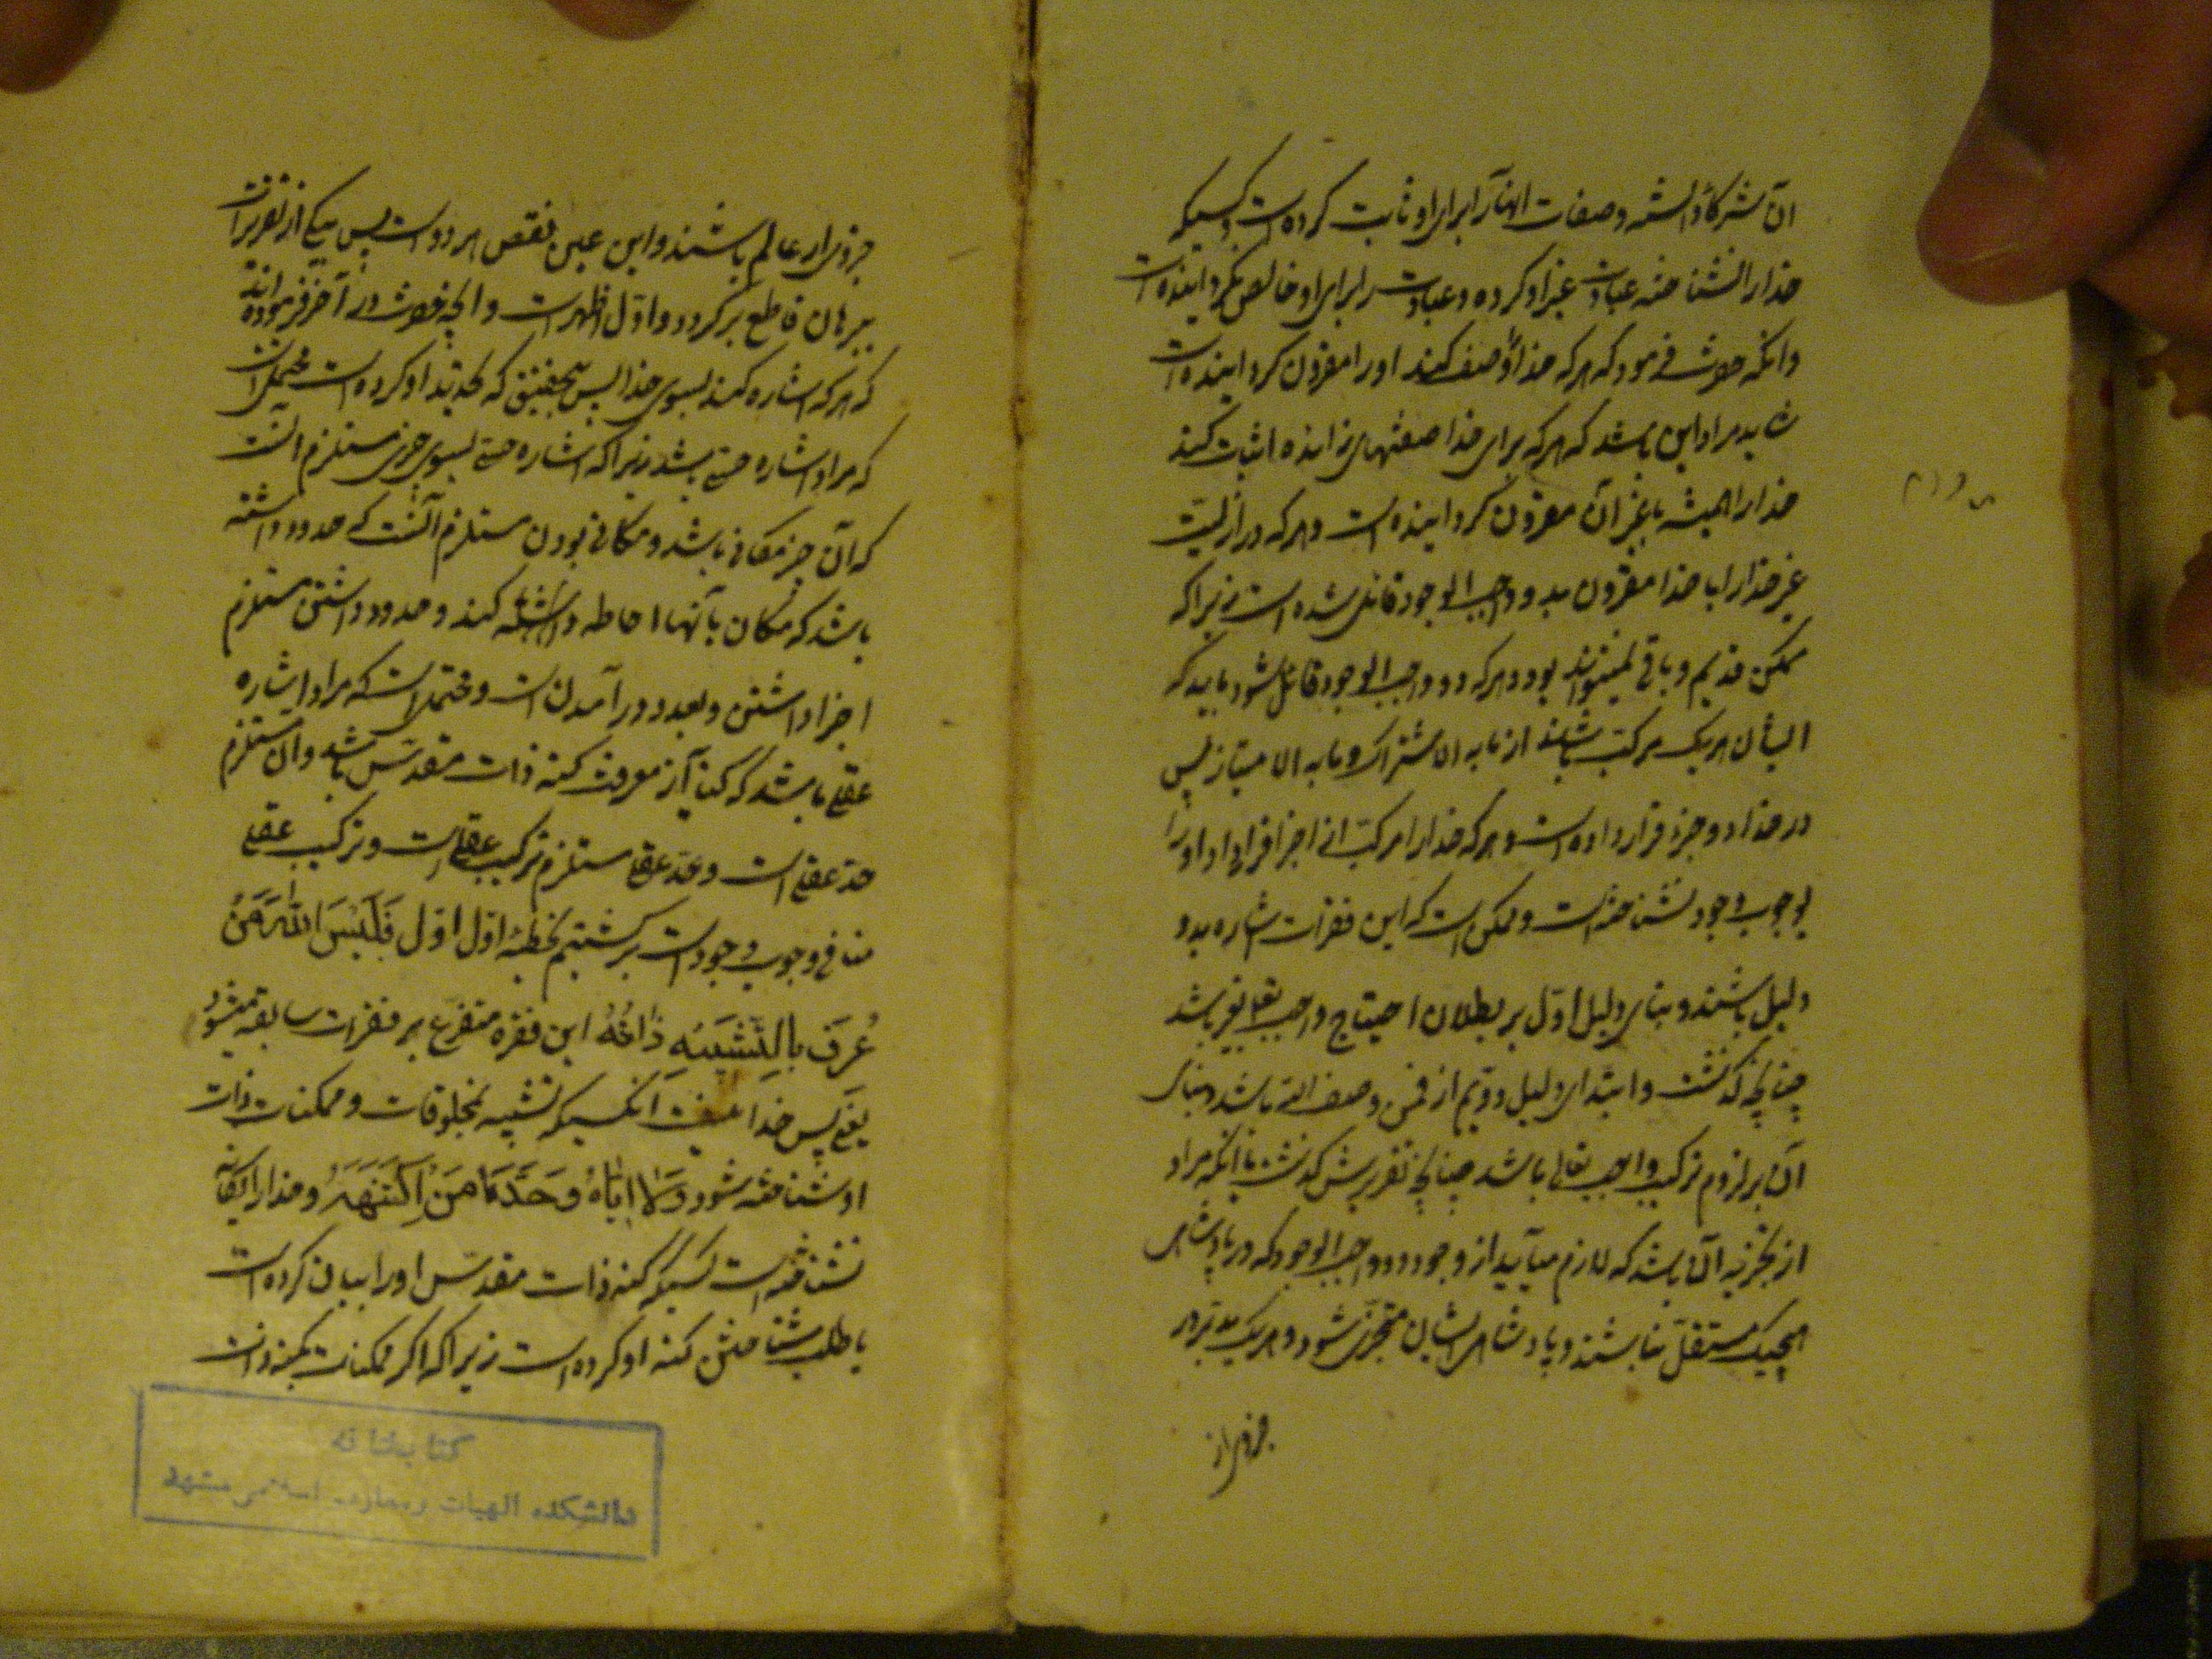 آن شرکا دانسته و صفات آنها را برای او ثابت کرده است و کسیکه
خدا را نشناخته عبادت غیر او کرده و عبادت را برای او خالص نکردانیده است
و آنکه حضرت فرمود که هر که خدا را وصف کند او را مقرون کردانیده است
شاید مراد این باشد که هر که برای خدا صفتهای زایده اثبات کند
خدا را همیشه با غیر آن مقرون کردانیده است و هر که در ازلیت
غیر خدا را با خدا مقرون بدو واجب الوجود قائل شده است زیرا که
ممکن قدیم و باقی نمیتواند بود و هر که دو واجب الوجود قائل شود باید که
ایشان هر یک مرکب باشند از ما به الاشتراک و ما به الامتیاز پس
در خدا دو جزء قرار داده است و هر که خدا را مرکب از اجزا قرار داد او را
بوجوب وجود نشناخته است و ممکن است که این فقرات اشاره بدو
دلیل باشند و بنای دلیل اول بر بطلان احتیاج واجب تعالی بغیر باشد
چنانچه کذشت و ابتدای دلیل دویم از فمن وصف الله باشد و بنای
آن بر لزوم ترکیب واجب تعالی باشد چنانچه تقریرش کذشت یا آنکه مراد
از تجزیه آن باشد که لازم میآید از وجود دو واجب الوجود که در پادشاهی
هیچیک مستقل نباشند و پادشاهی ایشان متجزی شود و هر یک مدبر
جزوی از
جزوی از عالم باشند و این عین نقص هر دو است پس یکی از تقریرات
برهان قاطع بر کردد و اول اظهر است و آنچه حضرت در آخر فرموده اند
که هر که اشاره کند بسوی خدا پس بتحقیق که تحدید او کرده است محتمل است
که مراد اشاره حسی باشد زیرا که اشاره حسی بسوی چیزی مستلزم آنست
که آن چیز مکانی باشد و مکانی بودن مستلزم آنست که حدود داشته
باشد که مکان بآنها احاطه داشته کند و حدود داشتن مستلزم
اجزا داشتن و بعدد در آمدن است و محتمل است که مراد اشاره
عقلی باشد که کنایه از معرفت کنه ذات مقدس باشد و آن مستلزم
حد عقلی است و حد عقلی مستلزم ترکیب عقلی است و ترکیب عقلی
منافی وجوب وجود است برکشتیم بخطبه اول اول فَلَیْسَ اللهَ مَنْ
عُرِفَ بِالتَّشْبِیهِ ذَاتُهُ این فقره متفرع بر فقرات سابقه میشود
یعنی پس خدا نیست آنکسیکه تشبیه بمخلوقات و ممکنات ذات
او شناخته شود وَلَا إِیَّاهُ وَحَّدَ مَنِ اکْتَنَهَهُ و خدا را بیکانکی
نشناخته است کسیکه کنه ذات مقدس او را بیان کرده است
یا طلب شناختن کنه او کرده است زیرا که اکر ممکنات بکنه ذات
کتابخانه
دانشکده الهیات و معارف اسلامی مشهد